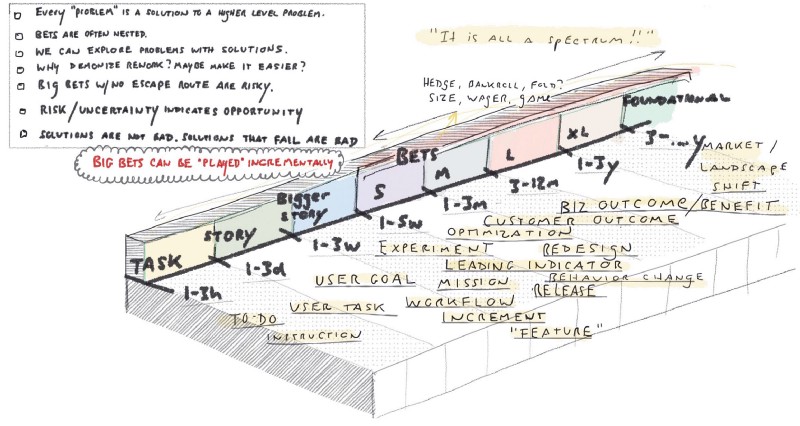 Every "problem" is a solution to a higher level problem.
Bets are often nested.
We can explore problems with solutions.
Why demonize rework? Maybe make it easier?
Big bets w/no escape route are risky.
Risk/uncertainty indicates opportunity
Solutions are not bad. Solutions that fail are bad
Big bets can be "played" incrementally
"It is all a spectrum!!"
Hedge, bankroll, fold?
Size, wager, game
Bets
Task
Story
Bigger
Story
S
M
L
XL
Foundational
1-3h
1-3d
1-3w
1-5w
1-3m
3-12m
1-3y
3-...y
Market/
Landscape
Shift
Biz outcome/Benefit
Customer outcome
Optimization
Experiment
Redesign
Leading indicator
Behavior change
User goal
Mission
Release
User task
Workflow
Increment
To-do
Instruction
"Feature"